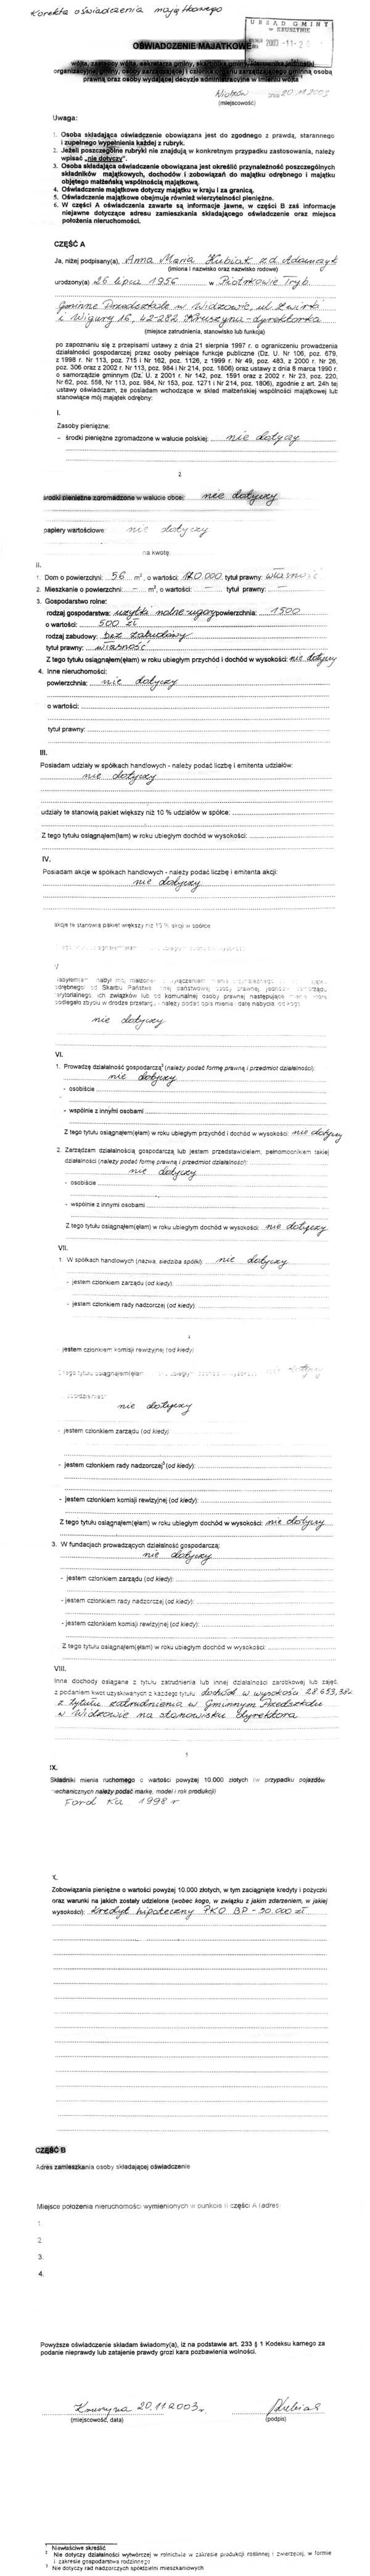 Korekta oświadczenia majątkowego
URZĄD GMINY
w KRUSZYNIE
2003 -11- 2
OŚWIADCZENIE MAJĄTKOWE
wójta, zastępcy wójta, sekretarza gminy, skarbnika gminy, kierownika jednostki
organizacyjnej gminy, osoby zarządzającej i członka organu zarządzającego gminną osobą
prawną oraz osoby wydającej decyzje administracyjne w imieniu wójta
dnia 20.11.2003
(miejscowość)
Uwaga:
1. Osoba składająca oświadczenie obowiązana jest do zgodnego z prawdą, starannego
i zupełnego wypełnienia każdej z rubryk.
2. Jeżeli poszczególne rubryki nie znajdują w konkretnym przypadku zastosowania, należy
wpisać „nie dotyczy”.
3. Osoba składająca oświadczenie obowiązana jest określić przynależność poszczególnych
składników majątkowych, dochodów i zobowiązań do majątku odrębnego i majątku
objętego małżeńską wspólnością majątkową.
4. Oświadczenie majątkowe dotyczy majątku w kraju i za granicą.
5. Oświadczenie majątkowe obejmuje również wierzytelności pieniężne.
6. W części A oświadczenia zawarte są informacje jawne, w części B zaś informacje
niejawne dotyczące adresu zamieszkania składającego oświadczenie oraz miejsca
położenia nieruchomości.
CZĘŚĆ A
Ja, niżej podpisany(a), Anna Maria Kubiak z d. Adamczyk
(imiona i nazwisko oraz nazwisko rodowe)
urodzony(a) 26 lipca 1956 w Piotrkowie Tryb.
Gminne Przedszkole w Widzowie, ul. Żwirki
i Wigury 16, 42-282 Kruszyna - dyrektorka
(miejsce zatrudnienia, stanowisko lub funkcja)
po zapoznaniu się z przepisami ustawy z dnia 21 sierpnia 1997 r. o ograniczeniu prowadzenia
działalności gospodarczej przez osoby pełniące funkcje publiczne (Dz. U. Nr 106, poz. 679,
z 1998 r. Nr 113, poz. 715 i Nr 162, poz. 1126, z 1999 r. Nr 49, poz. 483, z 2000 r. Nr 26,
poz. 306 oraz z 2002 r. Nr 113, poz. 984 i Nr 214, poz. 1806) oraz ustawy z dnia 8 marca 1990 r.
o samorządzie gminnym (Dz. U. z 2001 r. Nr 142, poz. 1591 oraz z 2002 r. Nr 23, poz. 220,
Nr 62, poz. 558, Nr 113, poz. 984, Nr 153, poz. 1271 i Nr 214, poz. 1806), zgodnie z art. 24h tej
ustawy oświadczam, że posiadam wchodzące w skład małżeńskiej wspólności majątkowej lub
stanowiące mój majątek odrębny:
I.
Zasoby pieniężne:
– środki pieniężne zgromadzone w walucie polskiej: nie dotyczy
2
środki pieniężne zgromadzone w walucie obcej: nie dotyczy
papiery wartościowe: nie dotyczy
na kwotę:
II.
1. Dom o powierzchni: 56 m², o wartości: tytuł prawny: własność
2. Mieszkanie o powierzchni: – m², o wartości: – tytuł prawny: –
3. Gospodarstwo rolne:
rodzaj gospodarstwa: użytki rolne-ugory powierzchnia: 1500
o wartości: 500 zł
rodzaj zabudowy: bez zabudowy
tytuł prawny: własność
Z tego tytułu osiągnąłem(ęłam) w roku ubiegłym przychód i dochód w wysokości: nie dotyczy
4. Inne nieruchomości:
powierzchnia: nie dotyczy
o wartości:
tytuł prawny:
III.
Posiadam udziały w spółkach handlowych - należy podać liczbę i emitenta udziałów:
nie dotyczy
udziały te stanowią pakiet większy niż 10 % udziałów w spółce:
Z tego tytułu osiągnąłem(ęłam) w roku ubiegłym dochód w wysokości:
IV.
Posiadam akcje w spółkach handlowych - należy podać liczbę i emitenta akcji:
nie dotyczy
akcje te stanowią pakiet większy niż 10 % akcji w spółce
V
nie dotyczy
VI.
1. Prowadzę działalność gospodarczą² (należy podać formę prawną i przedmiot działalności):
nie dotyczy
- osobiście
- wspólnie z innymi osobami
Z tego tytułu osiągnąłem(ęłam) w roku ubiegłym przychód i dochód w wysokości: nie dotyczy
2. Zarządzam działalnością gospodarczą lub jestem przedstawicielem, pełnomocnikiem takiej
działalności (należy podać formę prawną i przedmiot działalności):
nie dotyczy
- osobiście
- wspólnie z innymi osobami
Z tego tytułu osiągnąłem(ęłam) w roku ubiegłym dochód w wysokości: nie dotyczy
VII.
1. W spółkach handlowych (nazwa, siedziba spółki): nie dotyczy
- jestem członkiem zarządu (od kiedy):
- jestem członkiem rady nadzorczej (od kiedy):
jestem członkiem komisji rewizyjnej (od kiedy)
nie dotyczy
- jestem członkiem zarządu (od kiedy):
- jestem członkiem rady nadzorczej³ (od kiedy):
- jestem członkiem komisji rewizyjnej (od kiedy):
Z tego tytułu osiągnąłem(ęłam) w roku ubiegłym dochód w wysokości: nie dotyczy
3. W fundacjach prowadzących działalność gospodarczą:
nie dotyczy
- jestem członkiem zarządu (od kiedy):
- jestem członkiem rady nadzorczej (od kiedy):
- jestem członkiem komisji rewizyjnej (od kiedy):
Z tego tytułu osiągnąłem(ęłam) w roku ubiegłym dochód w wysokości:
VIII.
Inne dochody osiągane z tytułu zatrudnienia lub innej działalności zarobkowej lub zajęć,
z podaniem kwot uzyskiwanych z każdego tytułu: dochód w wysokości 28.653,38
z tytułu zatrudnienia w Gminnym Przedszkolu
w Widzowie na stanowisku dyrektora
IX.
Składniki mienia ruchomego o wartości powyżej 10.000 złotych (w przypadku pojazdów
mechanicznych należy podać markę, model i rok produkcji)
Ford Ka 1998 r
X.
Zobowiązania pieniężne o wartości powyżej 10.000 złotych, w tym zaciągnięte kredyty i pożyczki
oraz warunki na jakich zostały udzielone (wobec kogo, w związku z jakim zdarzeniem, w jakiej
wysokości): kredyt hipoteczny PKO BP - 30.000 zł
CZĘŚĆ B
Adres zamieszkania osoby składającej oświadczenie
Miejsce położenia nieruchomości wymienionych w punkcie II części A (adres)
1.
2
3.
4.
Powyższe oświadczenie składam świadomy(a), iż na podstawie art. 233 § 1 Kodeksu karnego za
podanie nieprawdy lub zatajenie prawdy grozi kara pozbawienia wolności.
Kruszyna 20.11.2003 r.
(miejscowość, data)
(podpis)
¹ Niewłaściwe skreślić
² Nie dotyczy działalności wytwórczej w rolnictwie w zakresie produkcji roślinnej i zwierzęcej, w formie
i zakresie gospodarstwa rodzinnego
³ Nie dotyczy rad nadzorczych spółdzielni mieszkaniowych